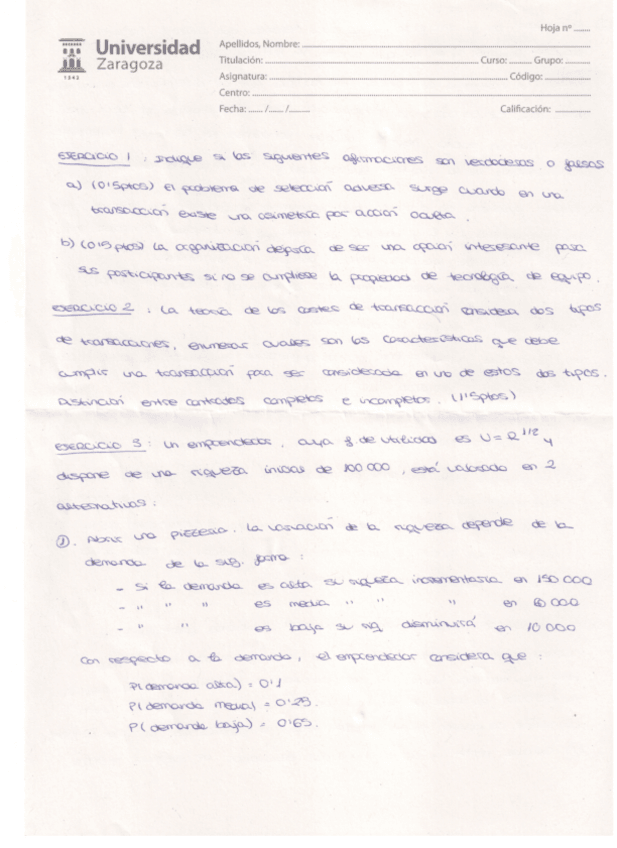 Hoja nº ........
Universidad
Zaragoza
1542
Apellidos, Nombre:
Titulación: Curso: Grupo:
Asignatura: Código:
Centro:
Fecha: ...... /...... /........ Calificación:
EJERCICIO 1 : Indique si las siguientes afirmaciones son verdaderas o falsas
a) (0'5ptos) el problema de selección adversa surge cuando en una
transacción existe una asimetría por acción oculta.
b) (0'5 ptos) La organización dejaría de ser una opción interesante para
sus participantes si no se cumpliese la propiedad de tecnología de equipo.
EJERCICIO 2 : La teoría de los costes de transacción considera dos tipos
de transacciones, enumerar cuales son las características que debe
cumplir una transacción para ser considerada en uno de estos dos tipos.
Distinción entre contratos completos e incompletos. (1'5ptos)
EJERCICIO 3 : Un emprendedor, cuya f. de utilidad es U = R^1/2 y
dispone de una riqueza inicial de 100 000, está valorando en 2
alternativas :
①. Abrir una pizzeria. La variación de la riqueza depende de la
demanda de la sig. forma :
- Si la demanda es alta su riqueza incrementaría en 150 000
- " " " es media " " " en 60 000
- " " es baja su riq. disminuirá en 10 000
Con respecto a la demanda, el emprendedor considera que :
P(demanda alta) = 0'1
P(demanda media) = 0'25.
P(demanda baja) = 0'65.